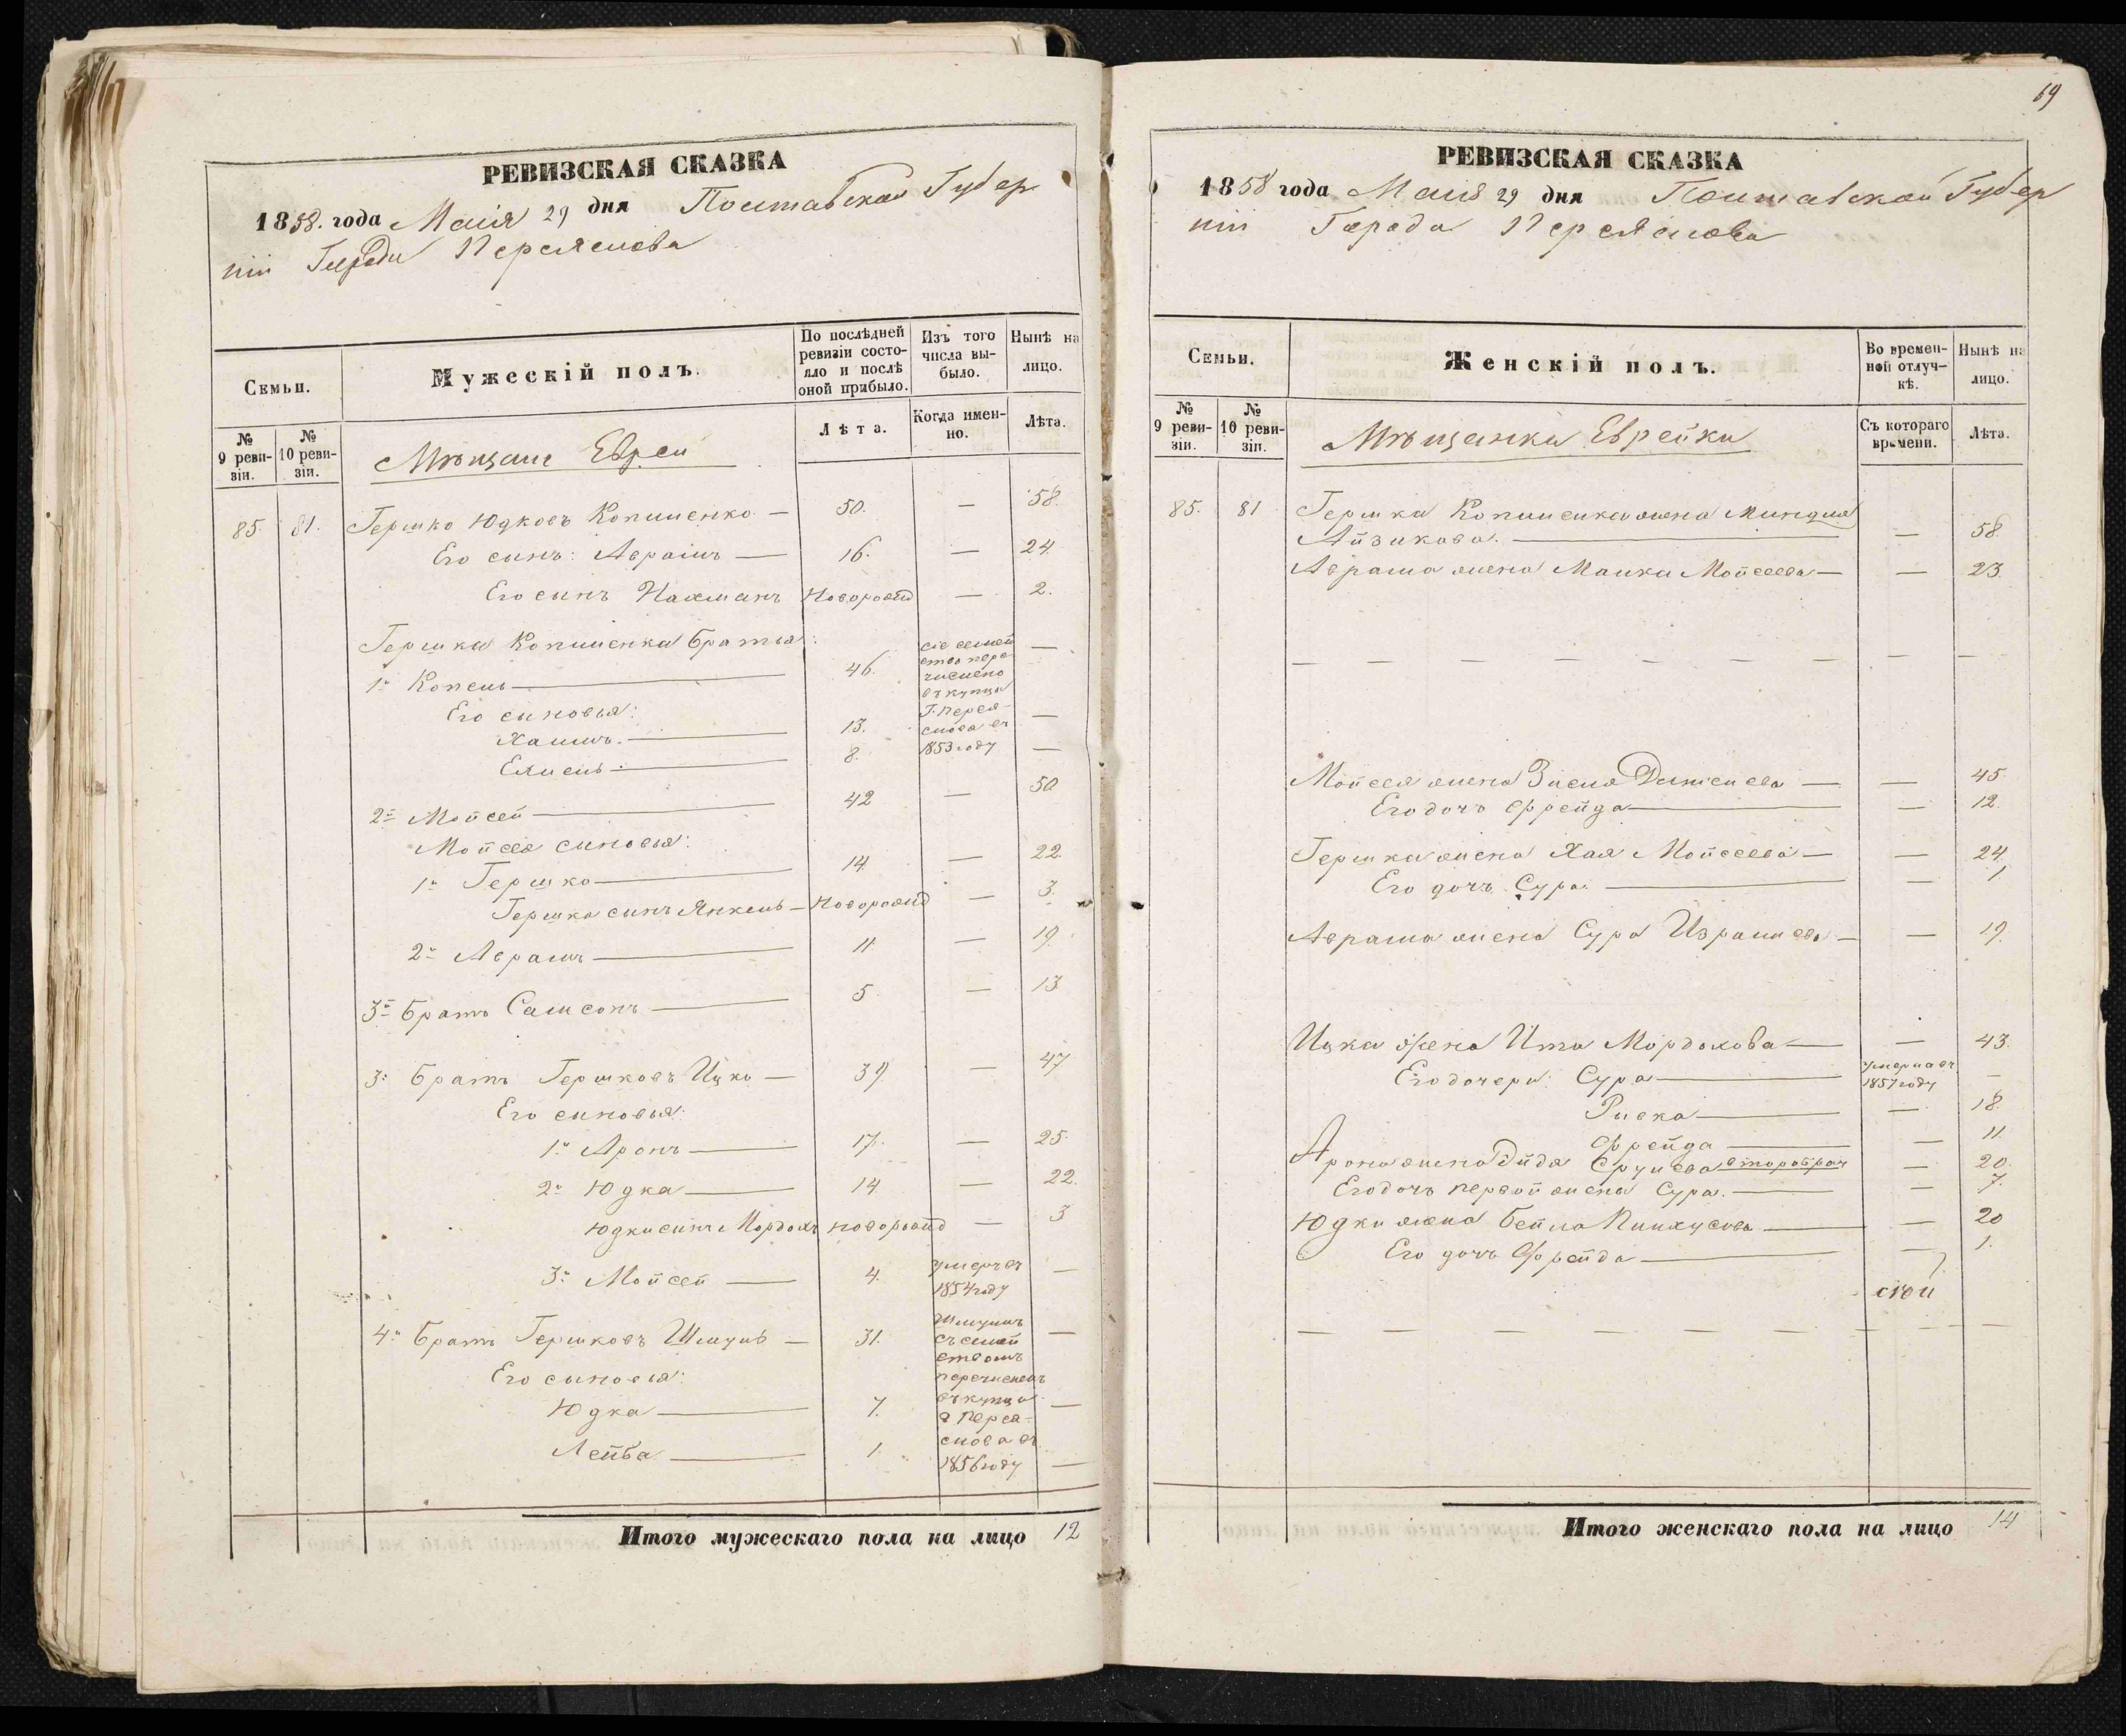 РЕВИЗСКАЯ СКАЗКА
1858. года Маія 29 дня Полтавской Губер
ніи Города Переяслова
Семьи.
Мужескій полъ.
По послѣдней ревизіи состо-
яло и послѣ оной прибыло.
Изъ того числа вы-
было.
Нынѣ на лицо.
№ 9 реви-
зіи.
№ 10 реви-
зіи.
Лѣта.
Когда имен-
но.
Лѣта.
Мѣщане Евреи
85. 81. Гершко Юдковъ Копиленко — 50. — 58.
Его сынъ: Аврамъ — 16. — 24.
Его сынъ Нахманъ Новорожд — 2.
Гершка Копиленка братья:
1й Копель — 46. сіе семей
ство пере
числено
въ купцы
Г. Перея-
слова въ
1853 году —
Его сыновья:
Хаимъ. — 13. —
Елиель — 8. —
2й Мойсей — 42 — 50
Мойсея сыновья:
1й Гершко — 14. — 22.
Гершка сынъ Янкель — Новорожд — 3.
2й Аврамъ — 11. — 19.
3й Братъ Самсонъ — 5 — 13
3й Братъ Гершковъ Ицко — 39 — 47
Его сыновья:
1й Аронъ — 17. — 25.
2й Юдка — 14 — 22.
Юдки сынъ Мордохъ новорожд — 3
3й Мойсей — 4. умеръ въ
1854 году —
4й Братъ Гершковъ Шмуль — 31. Шмуль
съ семей
ствомъ
перечисленъ
въ купцы
г Перея-
слова въ
1856 году —
Его сыновья:
Юдка — 7. —
Лейба — 1. —
Итого мужескаго пола на лицо 12
69
РЕВИЗСКАЯ СКАЗКА
1858 года Маія 29 дня Полтавской Губер
ніи Города Переяслова
Семьи.
Женскій полъ.
Во времен-
ной отлуч-
кѣ.
Нынѣ на лицо.
№ 9 реви-
зіи.
№ 10 реви-
зіи.
Съ котораго времени.
Лѣта.
Мѣщанки Еврейки
85. 81 Гершка Копиленка жена Миндля
Айзикова. — — 58.
Аврама жена Малка Мойсеева — — 23.
Мойсея жена Зисля — — 45.
Его дочь Фрейда — — 12.
Гершка жена Хая Мойсеева — — 24.
Его дочь Сура. — — 1
Аврама жена Сура Израилева — — 19.
Ицка жена Ита Мордохова — — 43.
Его дочери: Сура — умерла въ
1857 году —
Ривка — — 18.
Фрейда — — 11.
Арона жена Сруліова второбрач — 20.
Его дочь первой жены Сура. — — 7.
Юдки жена Бейла Пинхусова — — 20
Его дочь Фрейда — — 1.
Итого женскаго пола на лицо 14